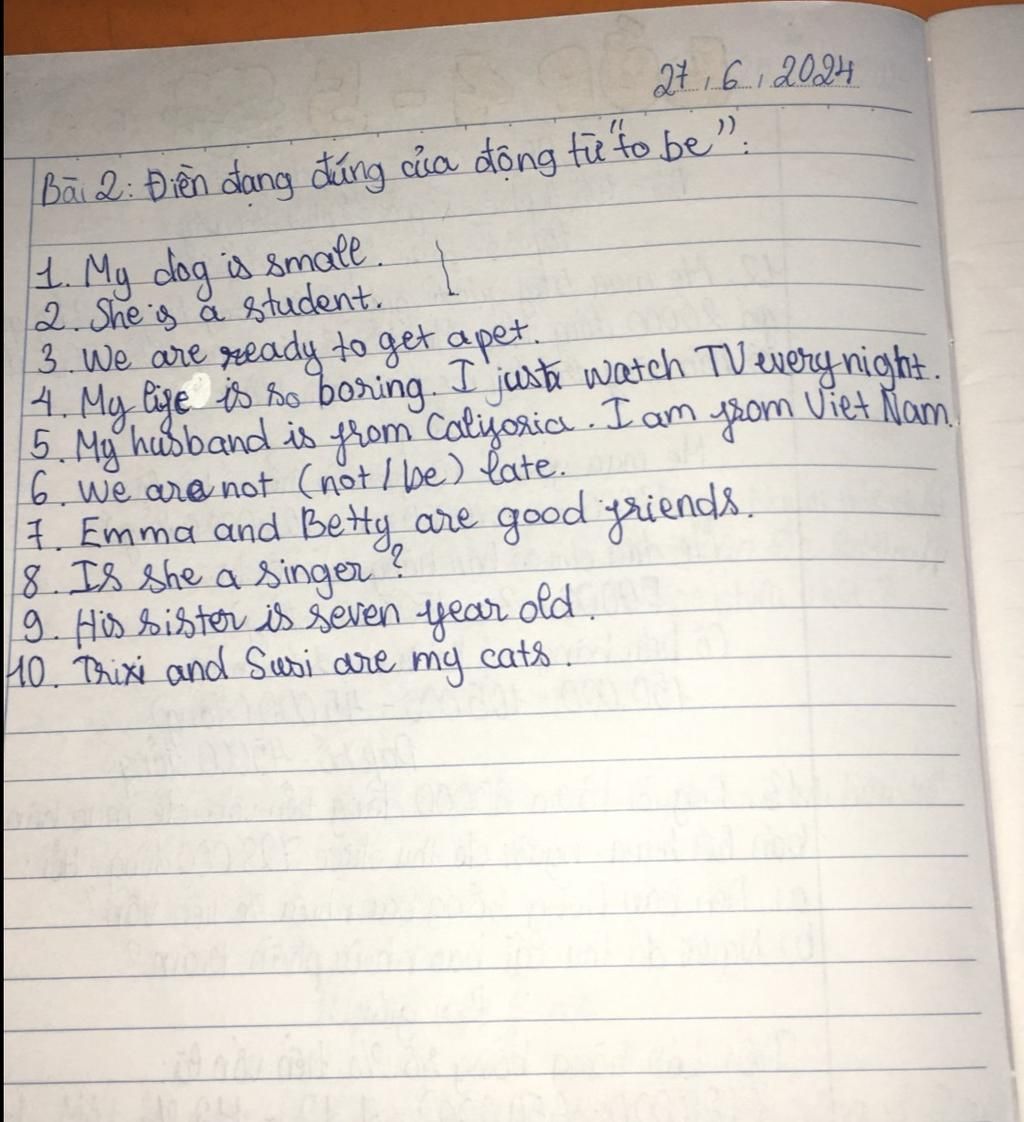 27, 6, 2024
Bài 2: Điền dạng đúng của động từ "to be":
1. My dog is small.
2. She is a student.
3. We are ready to get a pet.
4. My life is so boring. I just watch TV every night.
5. My husband is from Califoria. I am from Viet Nam.
6. We are not (not / be) late.
7. Emma and Betty are good friends.
8. Is she a singer?
9. His sister is seven year old.
10. Trixi and Susi are my cats.